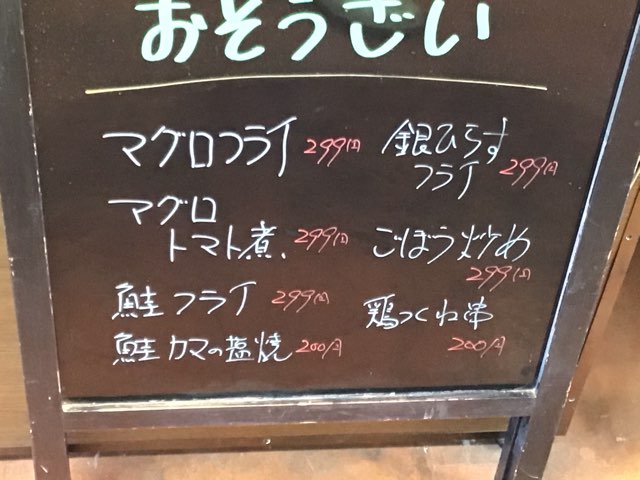 おそうざい
マグロフライ 299円
マグロ
トマト煮、 299円
鮭フライ 299円
鮭カマの塩焼 200円
銀ひらす
フライ 299円
ごぼう炒め
299円
鶏つくね串
200円